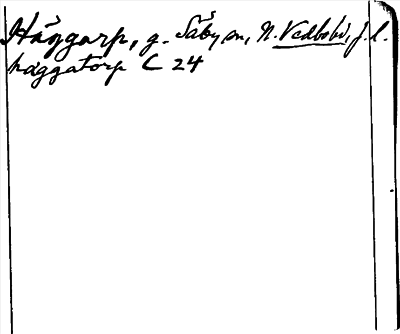 Häggarp, g. Säby sn, N. Vedbo hd, J. l.
häggatorp C 24